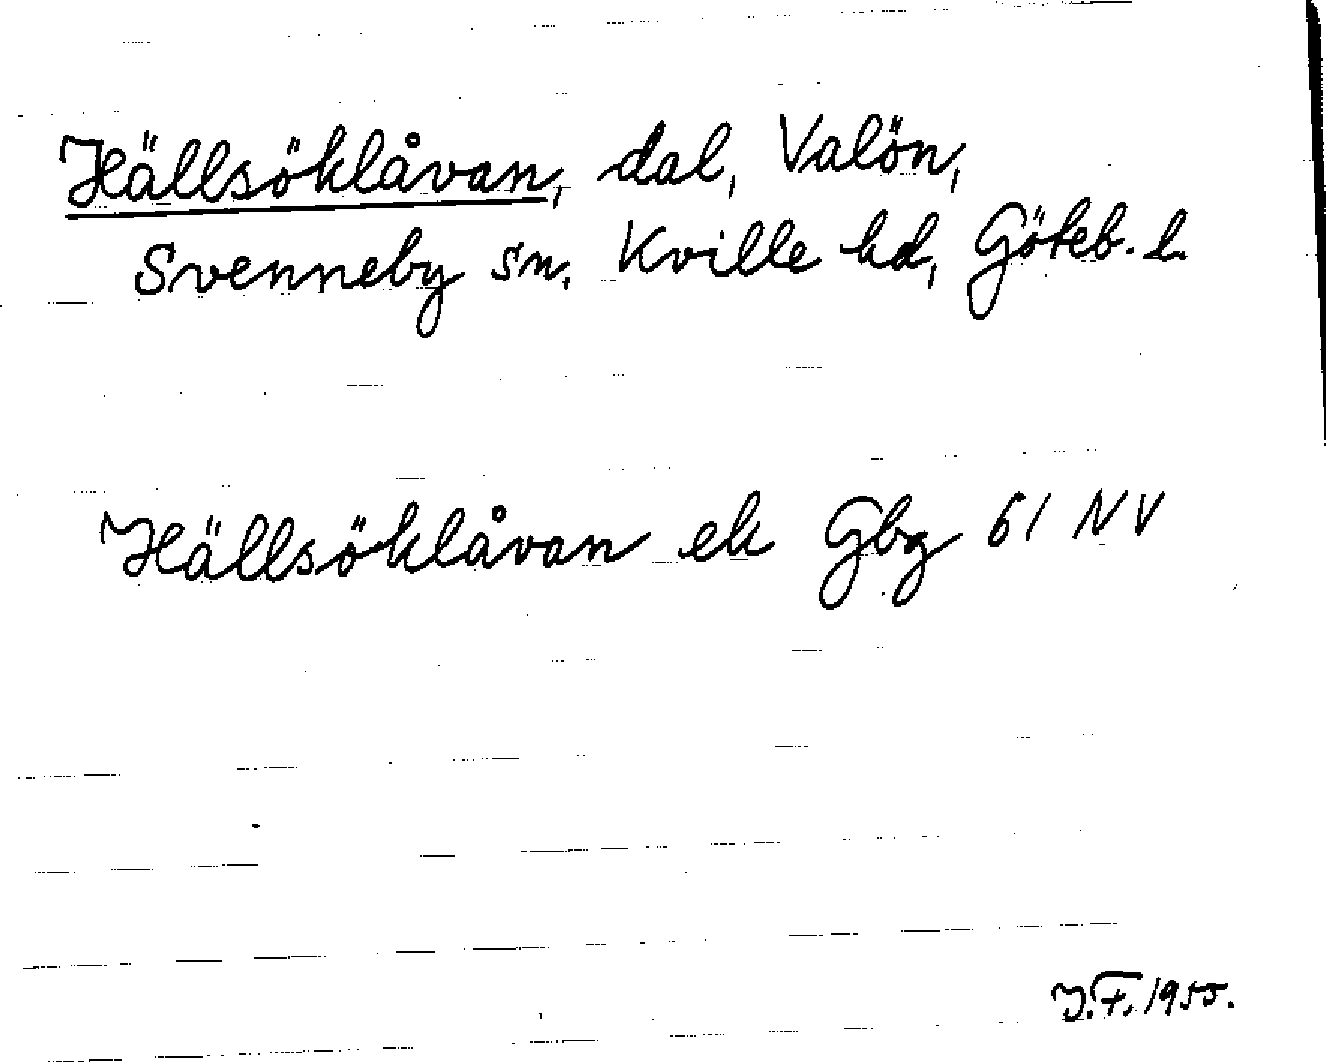 Hällsöklåvan, dal, Valön,
Svenneby sn, Kville hd, Göteb. l.
Hällsöklåvan ek Gbg 61 NV
J.F. 1955.